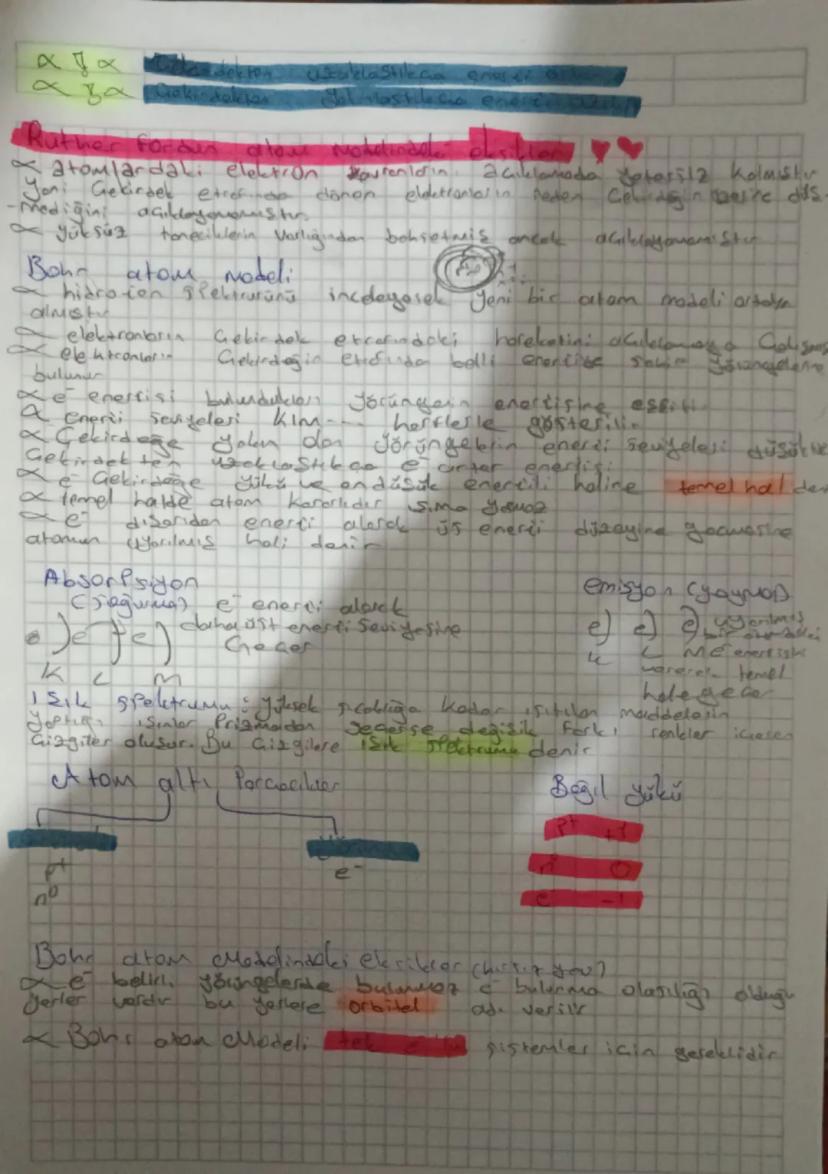 ∝ ʒ ∝ Çekirdekten uzaklaştıkça enerji artar
∝ ʒ ∝ Çekirdekten yakınlaştıkça enerji
Rutherfordun atom modelindeki eksikler ♥ ♥
∝ atomlardaki elektron açıklamada yetersiz kalmıştır
yani Çekirdek etrafında dönen elektronların neden Çekirdeğin üzerine düş-
-mediğini açıklayamamıştır.
∝ yüksüz taneciklerin varlığından bahsetmiş ancak açıklayamamıştır
Bohr atom modeli
∝ hidrojen spektrumunu inceleyerek yeni bir atom modeli ortaya
atmıştır
∝ elektronların Çekirdek etrafındaki hareketini açıklamaya Çalışmış
∝ elektronların Çekirdeğin etrafında belli enerjiye sahip yörüngelerde
bulunur
∝ e⁻ enerjisi bulundukları yörüngenin enerjisine eşittir
∝ enerji seviyeleri KLM... harflerle gösterilir
∝ Çekirdeğe yakın olan yörüngelerin enerji seviyeleri düşüktür
Çekirdekten uzaklaştıkça e⁻ artar enerjisi
∝ e⁻ Çekirdeğe yakın ve en düşük enerjili haline temel hal denir
∝ temel halde atom kararlıdır ışıma yapmaz
∝ e⁻ dışarıdan enerji alarak üst enerji düzeyine geçmesine
atomun uyarılmış hali denir
Absorpsiyon
(soğurma) e⁻ enerji alarak
daha üst enerji seviyesine
Geçer
K L M
emisyon (yayma)
e) e) e) uyarılmış
K L M e⁻ enerjisini
vererek temel
hale geçer
Işık spektrumu: yüksek sıcaklığa kadar ısıtılan maddelerin
yaptığı ışınlar Prizmadan geçerse değişik farklı renkler içeren
Çizgiler oluşur. Bu Çizgilere ışık spektrumu denir
Atom altı Parçacıklar
Bağıl yükü
p⁺ +1
n⁰ 0
e⁻ -1
p⁺
n⁰
e⁻
Bohr atom Modelindeki eksikler
∝ e⁻ belirli yörüngelerde bulunmaz e⁻ bulunma olasılığı olduğu
yerler vardır bu yerlere orbitel adı verilir
∝ Bohr atom Modeli tek sistemler için gereklidir